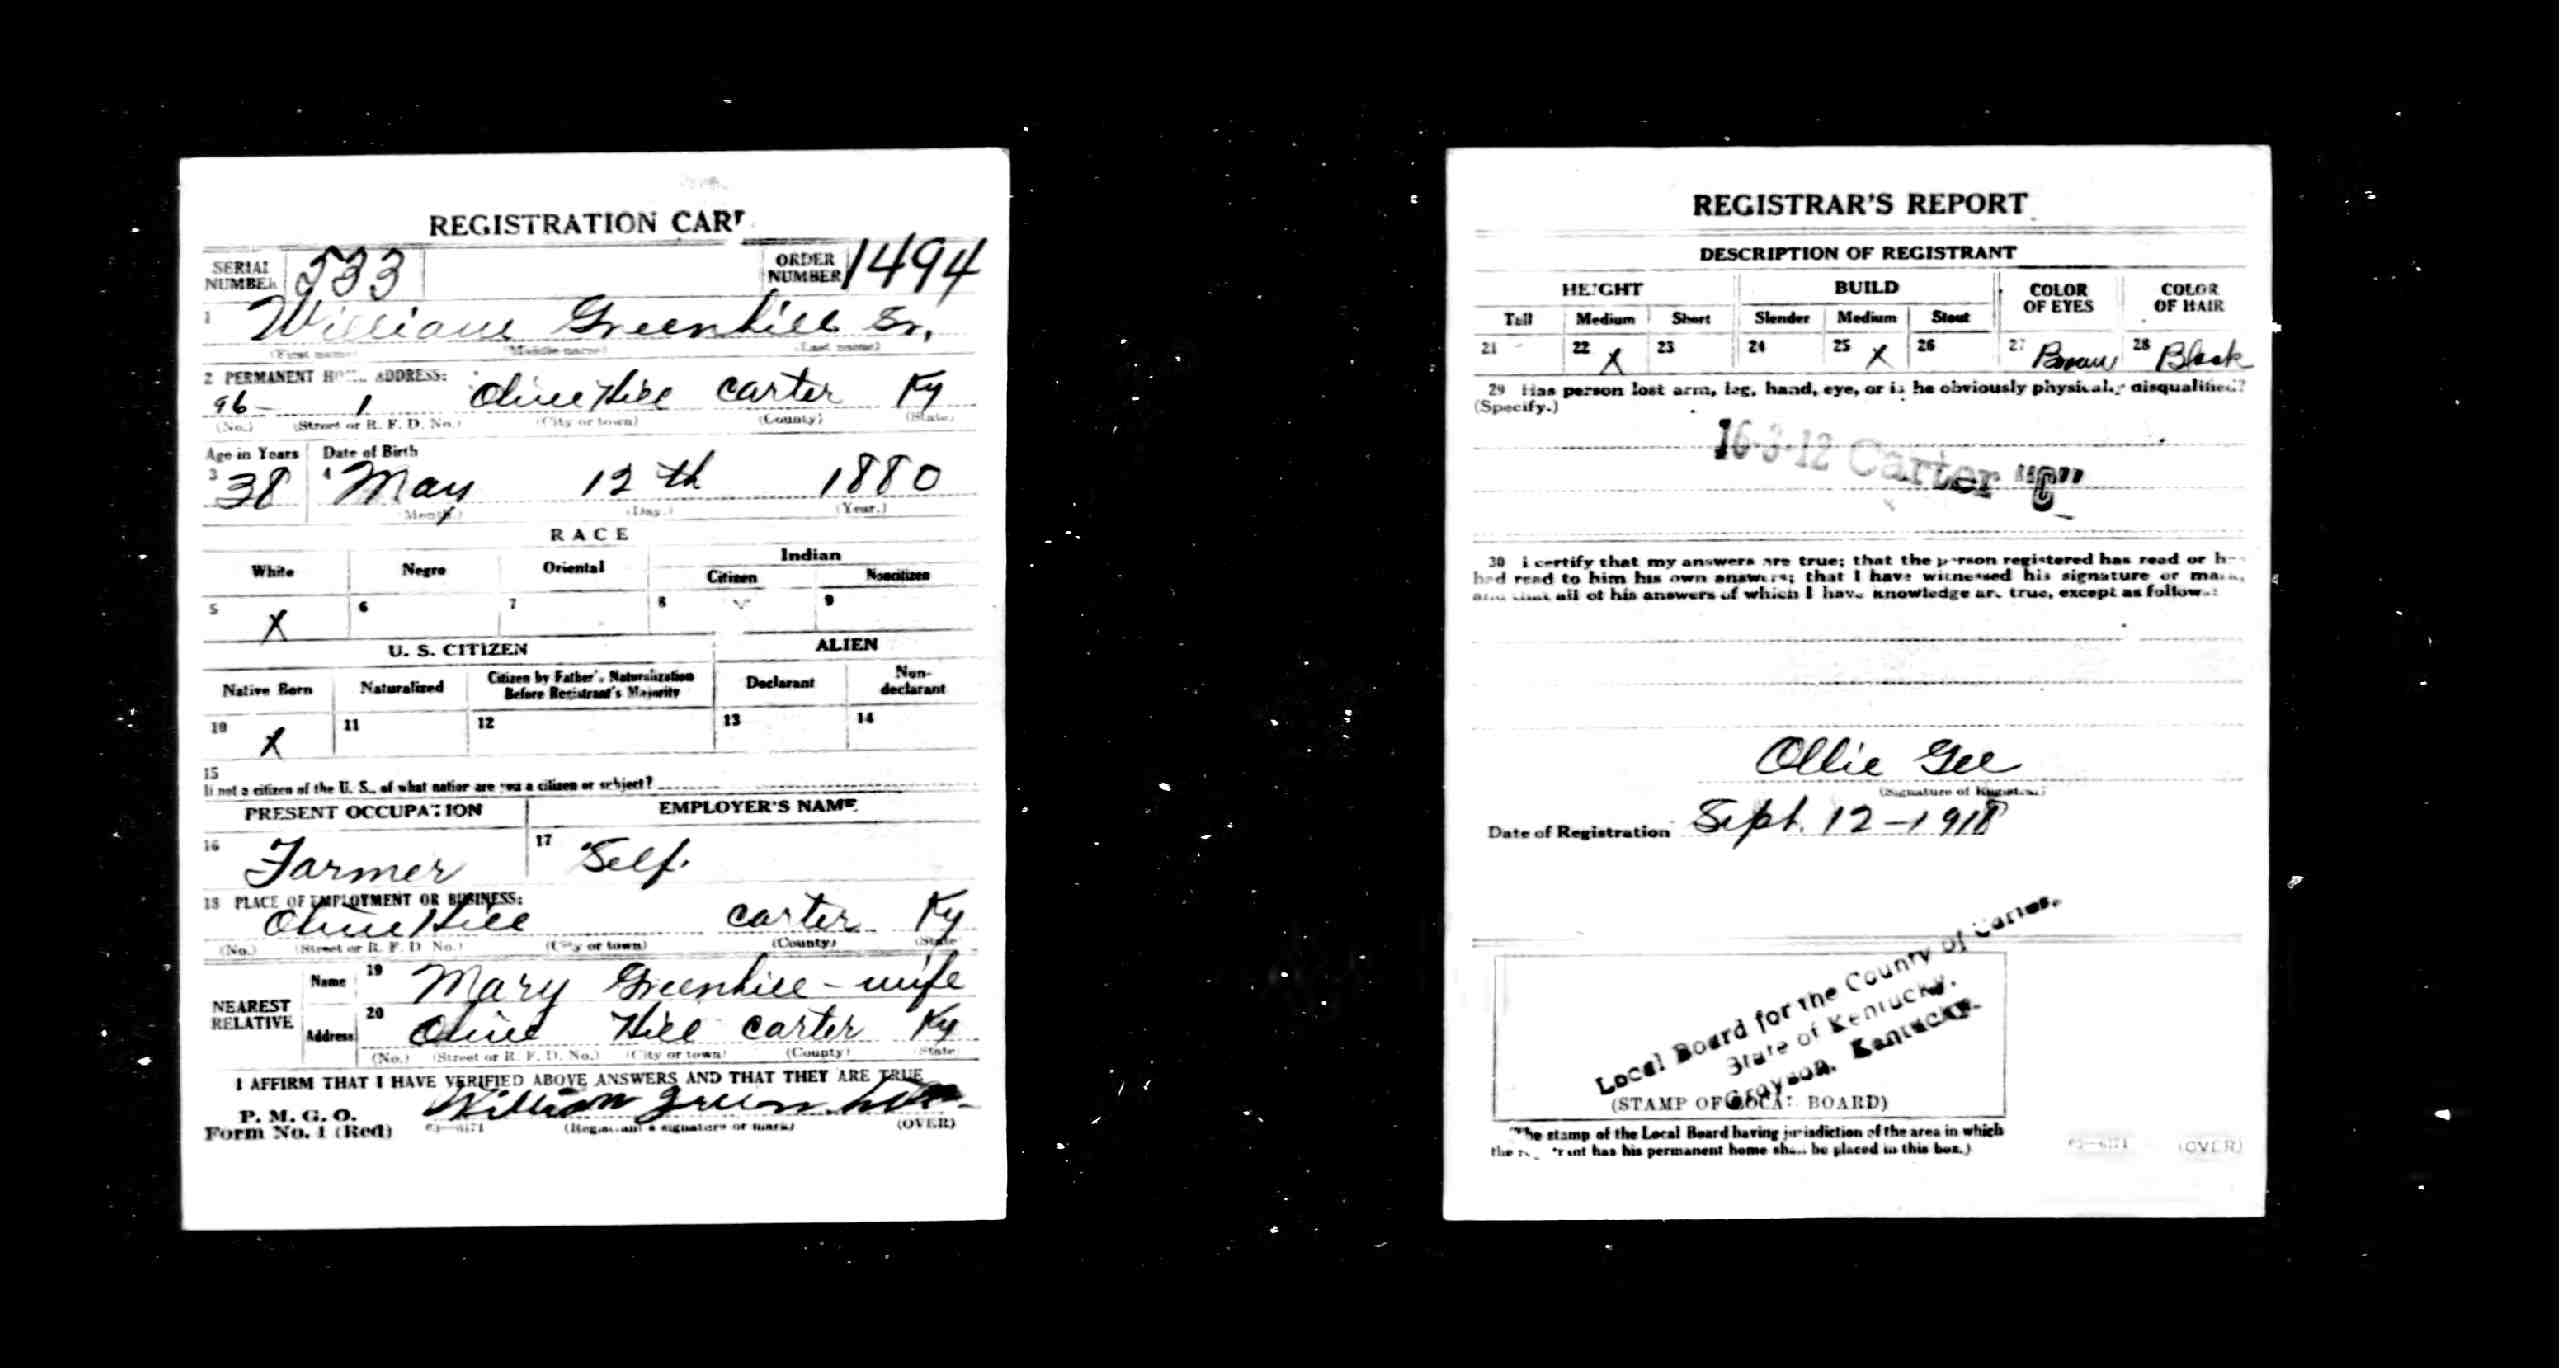 REGISTRATION CARD
SERIAL NUMBER 533 ORDER NUMBER 1494
1 William Greenhill Sr.
(First name) (Middle name) (Last name)
2 PERMANENT HOME ADDRESS:
96- 1 Olive Hill Carter Ky
(No.) (Street or R. F. D. No.) (City or town) (County) (State)
Age in Years Date of Birth
3 38 4 May 12th 1880
(Month.) (Day.) (Year.)
RACE
White Negro Oriental Indian
Citizen Noncitizen
5 X 6 7 8 9
U. S. CITIZEN ALIEN
Native Born Naturalized Citizen by Father's Naturalization Before Registrant's Majority Declarant Non-declarant
10 X 11 12 13 14
15
If not a citizen of the U. S., of what nation are you a citizen or subject?
PRESENT OCCUPATION EMPLOYER'S NAME
16 Farmer 17 Self.
18 PLACE OF EMPLOYMENT OR BUSINESS:
Olive Hill Carter Ky
(No.) (Street or R. F. D. No.) (City or town) (County) (State
NEAREST RELATIVE
Name 19 Mary Greenhill - wife
Address 20 Olive Hill Carter Ky
(No.) (Street or R. F. D. No.) (City or town) (County) (State
I AFFIRM THAT I HAVE VERIFIED ABOVE ANSWERS AND THAT THEY ARE TRUE
P. M. G. O.
Form No. 1 (Red) William Greenhill
03—6171 (Registrant's signature or mark) (OVER)
REGISTRAR'S REPORT
DESCRIPTION OF REGISTRANT
HEIGHT BUILD COLOR OF EYES COLOR OF HAIR
Tall Medium Short Slender Medium Stout
21 22 X 23 24 25 X 26 27 Brown 28 Black
29 Has person lost arm, leg, hand, eye, or is he obviously physically disqualified?
(Specify.)
16-3-12 Carter "C"
30 I certify that my answers are true; that the person registered has read or has
had read to him his own answers; that I have witnessed his signature or mark,
and that all of his answers of which I have knowledge are true, except as follows:
Ollie Gee
(Signature of Registrar)
Date of Registration Sept. 12-1918
Local Board for the County of Carter,
State of Kentucky,
Grayson, Kentucky.
(STAMP OF LOCAL BOARD)
(The stamp of the Local Board having jurisdiction of the area in which
the registrant has his permanent home shall be placed in this box.)
03—6171 (OVER)